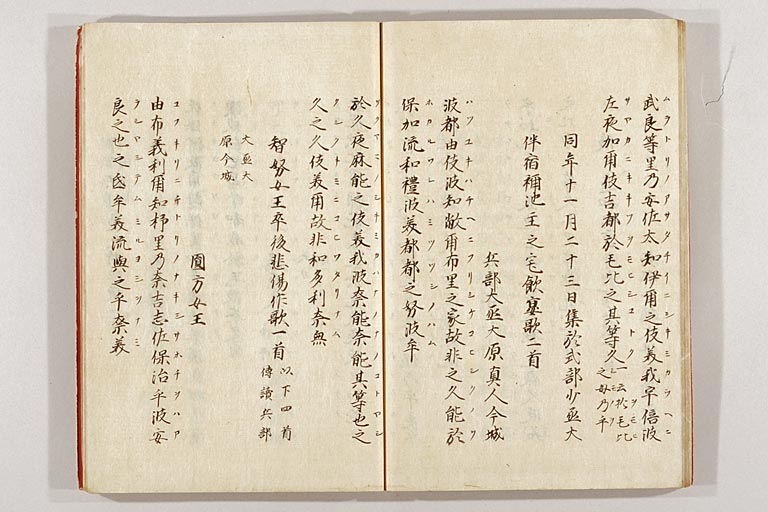 ムラトリノアサタチイニシキミカウヘハ
武良等里乃安佐太知伊爾之伎義我乎倍波
サヤカニキキツオモヒシコトク
左夜加爾伎吉都於毛比之其等久 一云於毛比之母乃乎
同年十一月二十三日集於式部少丞大
伴宿祢池主之宅飲宴歌二首
兵部大丞大原真人今城
ハツユキハチヘニフリシケコヒシクノオ
波都由伎波知敝爾布里之家故非之久能於
ホカルワレハミツツシノハム
保加流和禮波義都都之努波牟
オクヤマノシキミカハナノナノコトヤシ
於久夜麻能之伎義我波奈能奈能其等也之
クシクキミニコヒワタリナム
久之久伎義爾故非和多利奈無
智努女王卒後悲傷作歌一首 以下四首
傳讀兵部
大丞大
原今城
圓方女王
ユフキリニチトリノナキシサホチヲハア
由布義利爾知杼里乃奈吉志佐保治乎波安
ラシヤシテムミルヨシヲナミ
良之也之弖牟義流與之乎奈義